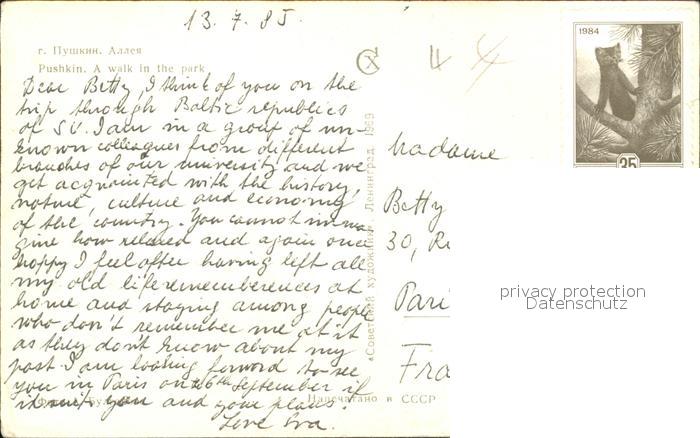 13. 7. 85.
г. Пушкин. Аллея
Pushkin. A walk in the park
Dear Betty, I think of you on the
trip through Baltic republics
of SU. I am in a group of un-
known colleagues from different
branches of our university and we
get acquainted with the history,
nature, culture and economy
of the country. You cannot imma
gine how relaxed and again once
happy I feel after having left all
my old liferememberences at
home and staying among people
who don't remember me at it
as they don't know about my
past. I am looking forward to see
you in Paris on 26th September if
it suits you and your plans.
Love Eva.
Напечатано в СССР
«Советский художник». Ленинград. 1969
1984
35
Madame
Betty
30, Ru
Pari
Fra
privacy protection
Datenschutz